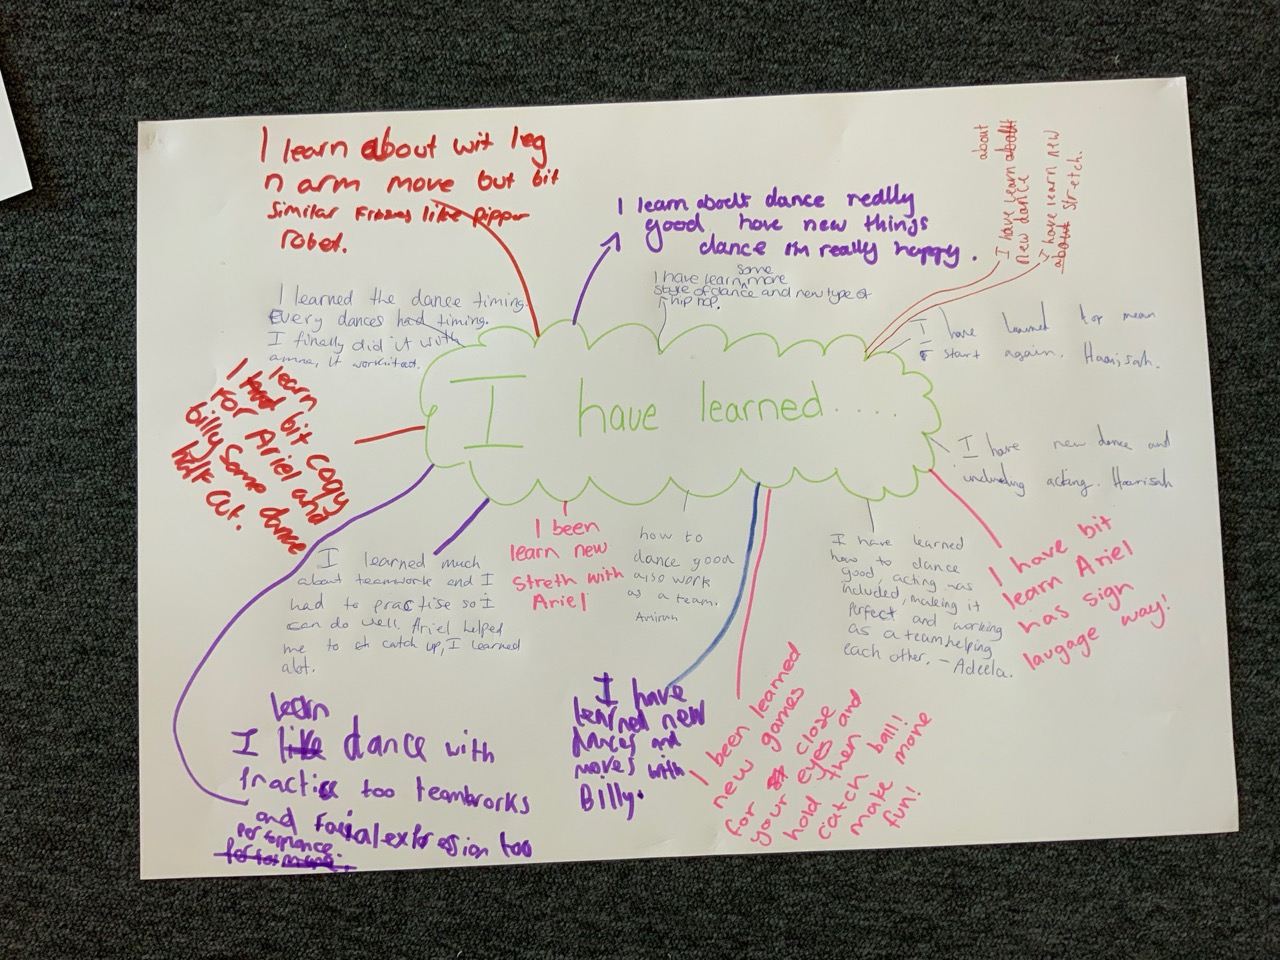 I learn about wit leg
n arm move but bit
similar Frozes like pipper
robot.
I learn about dance really
good have new things
dance I'm really happy.
I have learn about
new dance
I have learn new
stretch.
I have learn some more
style of dance and new type of
hip hop.
I learned the dance timing.
Every dances had timing.
I finally did it with
amna, it workited.
I have learned top mean
start again. Haarisah.
I have learned....
I learn
bit copy
for Ariel and
billy some dance
half cut.
I have new dance and
including acting. Haarisah
I learned much
about teamwork and I
had to practise so I
can do well. Ariel helped
me to catch up, I learned
alot.
I been
learn new
streth with
Ariel
how to
dance good
also work
as a team.
Amirah
I have learned
how to dance
good, acting was
included, making it
perfect and working
as a team helping
each other. - Adeela.
I have bit
learn Ariel
has sign
laugage way!
learn
I like dance with
Practice too teamworks
and facial expression too
performance.
I have
learned new
dances and
moves with
Billy.
I been learned
new games
for close
your eyes and
hold then
catch ball!
make more
fun!